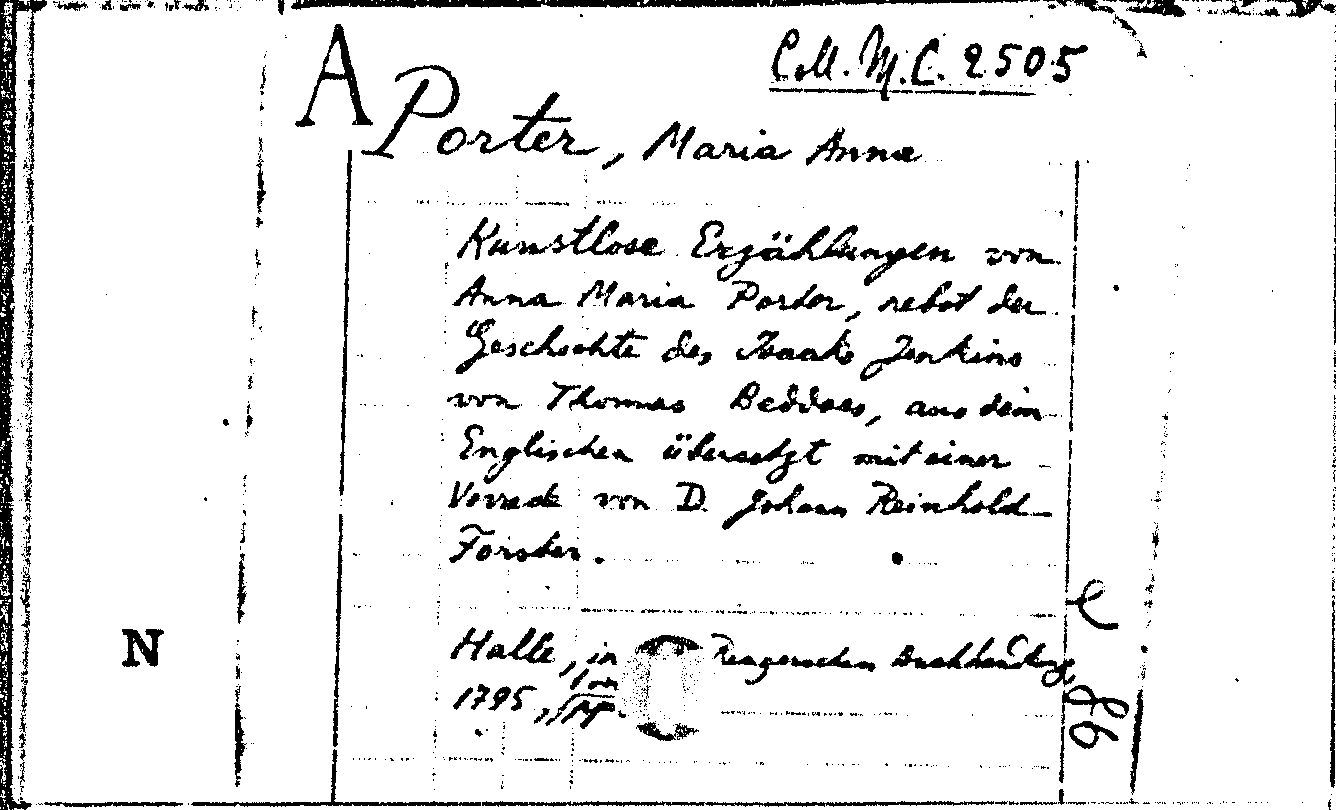 Coll. M.C. 2505
A Porter, Maria Anna
Kunstlose Erzählungen von
Anna Maria Porter, nebst der
Geschichte des Isaaks Jenkins
von Thomas Beddoes, aus dem
Englischen übersetzt mit einer
Vorrede von D. Johann Reinhold
Forster.
Halle, in Rengerschen Buchhandlung,
1795,
N